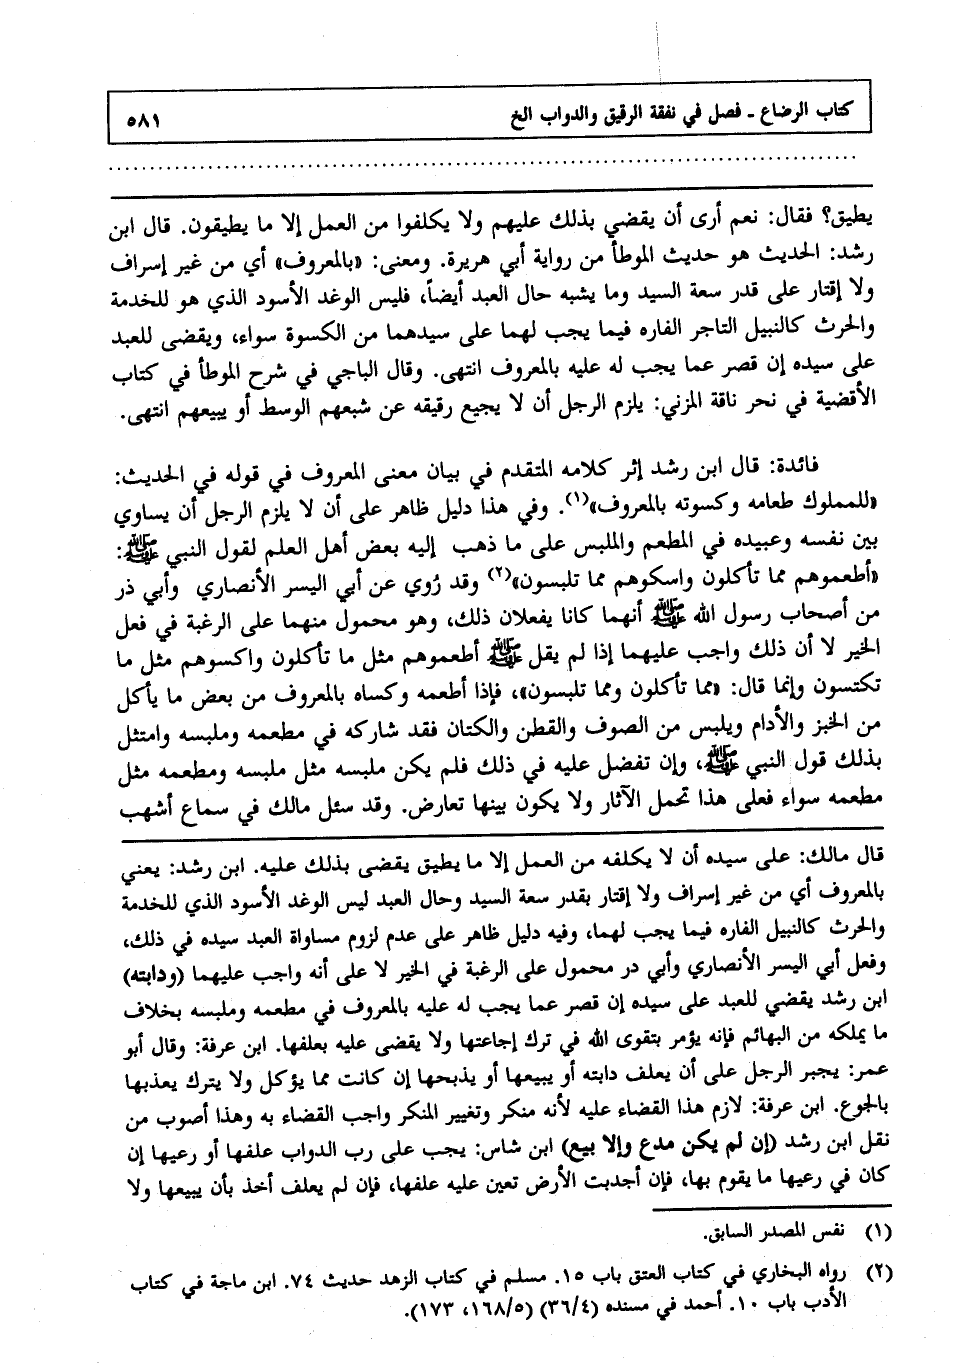 كتاب الرضاع ـ فصل في نفقة الرقيق والدواب الخ ٥٨١
يطيق؟ فقال: نعم أرى أن يقضي بذلك عليهم ولا يكلفوا من العمل إلا ما يطيقون. قال ابن
رشد: الحديث هو حديث الموطأ من رواية أبي هريرة. ومعنى: «بالمعروف» أي من غير إسراف
ولا إقتار على قدر سعة السيد وما يشبه حال العبد أيضاً، فليس الوغد الأسود الذي هو للخدمة
والحرث كالنبيل التاجر الفاره فيما يجب لهما على سيدهما من الكسوة سواء، ويقضى للعبد
على سيده إن قصر عما يجب له عليه بالمعروف انتهى. وقال الباجي في شرح الموطأ في كتاب
الأقضية في نحر ناقة المزني: يلزم الرجل أن لا يجيع رقيقه عن شبعهم الوسط أو يبيعهم انتهى.
فائدة: قال ابن رشد إثر كلامه المتقدم في بيان معنى المعروف في قوله في الحديث:
«للمملوك طعامه وكسوته بالمعروف»(١). وفي هذا دليل ظاهر على أن لا يلزم الرجل أن يساوي
بين نفسه وعبيده في المطعم والملبس على ما ذهب إليه بعض أهل العلم لقول النبي ﷺ:
«أطعموهم مما تأكلون واسكوهم مما تلبسون»(٢) وقد رُوي عن أبي اليسر الأنصاري وأبي ذر
من أصحاب رسول الله ﷺ أنهما كانا يفعلان ذلك، وهو محمول منهما على الرغبة في فعل
الخير لا أن ذلك واجب عليهما إذا لم يقل ﷺ أطعموهم مثل ما تأكلون واكسوهم مثل ما
تكتسون وإنما قال: «مما تأكلون ومما تلبسون»، فإذا أطعمه وكساه بالمعروف من بعض ما يأكل
من الخبز والأدام ويلبس من الصوف والقطن والكتان فقد شاركه في مطعمه وملبسه وامتثل
بذلك قول النبي ﷺ، وإن تفضل عليه في ذلك فلم يكن ملبسه مثل ملبسه ومطعمه مثل
مطعمه سواء فعلى هذا تحمل الآثار ولا يكون بينها تعارض. وقد سئل مالك في سماع أشهب
قال مالك: على سيده أن لا يكلفه من العمل إلا ما يطيق يقضى بذلك عليه. ابن رشد: يعني
بالمعروف أي من غير إسراف ولا إقتار بقدر سعة السيد وحال العبد ليس الوغد الأسود الذي للخدمة
والحرث كالنبيل الفاره فيما يجب لهما، وفيه دليل ظاهر على عدم لزوم مساواة العبد سيده في ذلك،
وفعل أبي اليسر الأنصاري وأبي در محمول على الرغبة في الخير لا على أنه واجب عليهما (ودابته)
ابن رشد يقضي للعبد على سيده إن قصر عما يجب له عليه بالمعروف في مطعمه وملبسه بخلاف
ما يملكه من البهائم فإنه يؤمر بتقوى الله في ترك إجاعتها ولا يقضى عليه بعلفها. ابن عرفة: وقال أبو
عمر: يجبر الرجل على أن يعلف دابته أو يبيعها أو يذبحها إن كانت مما يؤكل ولا يترك يعذبها
بالجوع. ابن عرفة: لازم هذا القضاء عليه لأنه منكر وتغيير المنكر واجب القضاء به وهذا أصوب من
نقل ابن رشد (إن لم يكن مدع وإلا بيع) ابن شاس: يجب على رب الدواب علفها أو رعيها إن
كان في رعيها ما يقوم بها، فإن أجدبت الأرض تعين عليه علفها، فإن لم يعلف أخذ بأن يبيعها ولا
(١) نفس المصدر السابق.
(٢) رواه البخاري في كتاب العتق باب ١٥. مسلم في كتاب الزهد حديث ٧٤. ابن ماجة في كتاب
الأدب باب ١٠. أحمد في مسنده (٣٦/٤) (١٦٨/٥، ١٧٣).